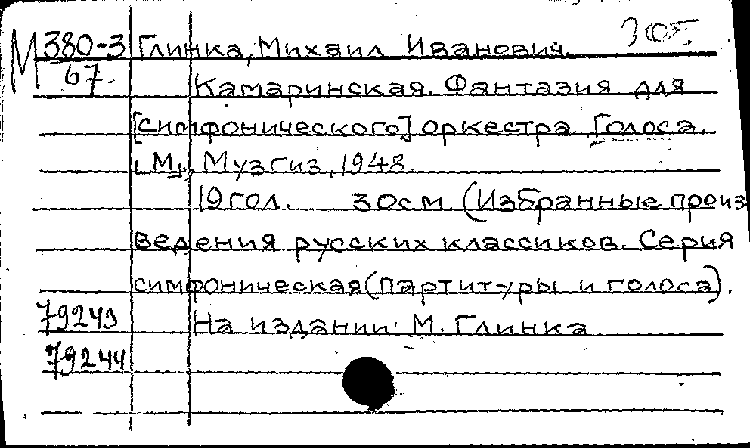 М 380-3 Глинка, Михаил Иванович.
67. Камаринская. Фантазия для
[симфонического] оркестра. Голоса.
[М], Музгиз, 1948.
19 гол. 30см (Избранные произ
ведения русских классиков. Серия
симфоническая (партитуры и голоса).
79243 На издании: М. Глинка
79244